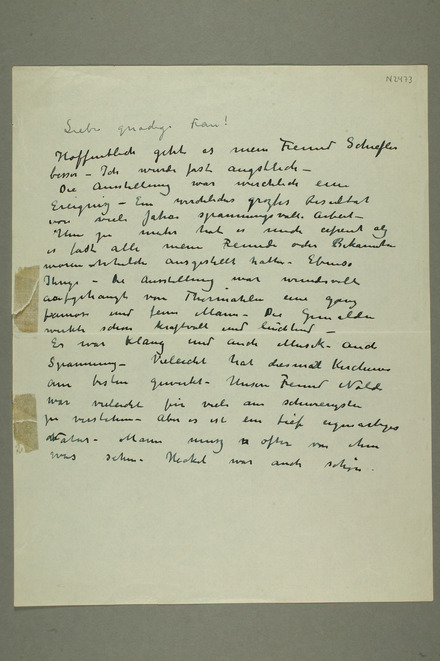 N2473
Liebe gnädige Frau!
Hoffentlich geht es mein Freund Schiefler
besser – Ich wurde fast angstlich –
Die Ausstellung war wirklich ein
Ereignis – Ein wirkliches großes Resultat
von viele Jahre spannungsvolle Arbeit –
Um zu mehr hat es mich erfreut als
es fast alle mein Freunde oder Bekannten
waren ausgestellt hatten – Ebenso
Ihnge – Die Ausstellung war wundervoll
aufgehangt von Thormaehlen eine ganz
famose und feine Mann – Die Gemälde
wirkte schön kraftvoll und
Es war Klang und auch Musik – und
Spannung – Vieleicht hat diesmal Kirchner
am besten gewirkt – Unsere Freund Nolde
war vieleicht für viele am schwersten
zu verstehen – Aber es ist ein tief eigenartiges
Natur – Mann muss öfter von ihm
was sehen – Heckel war auch schön.